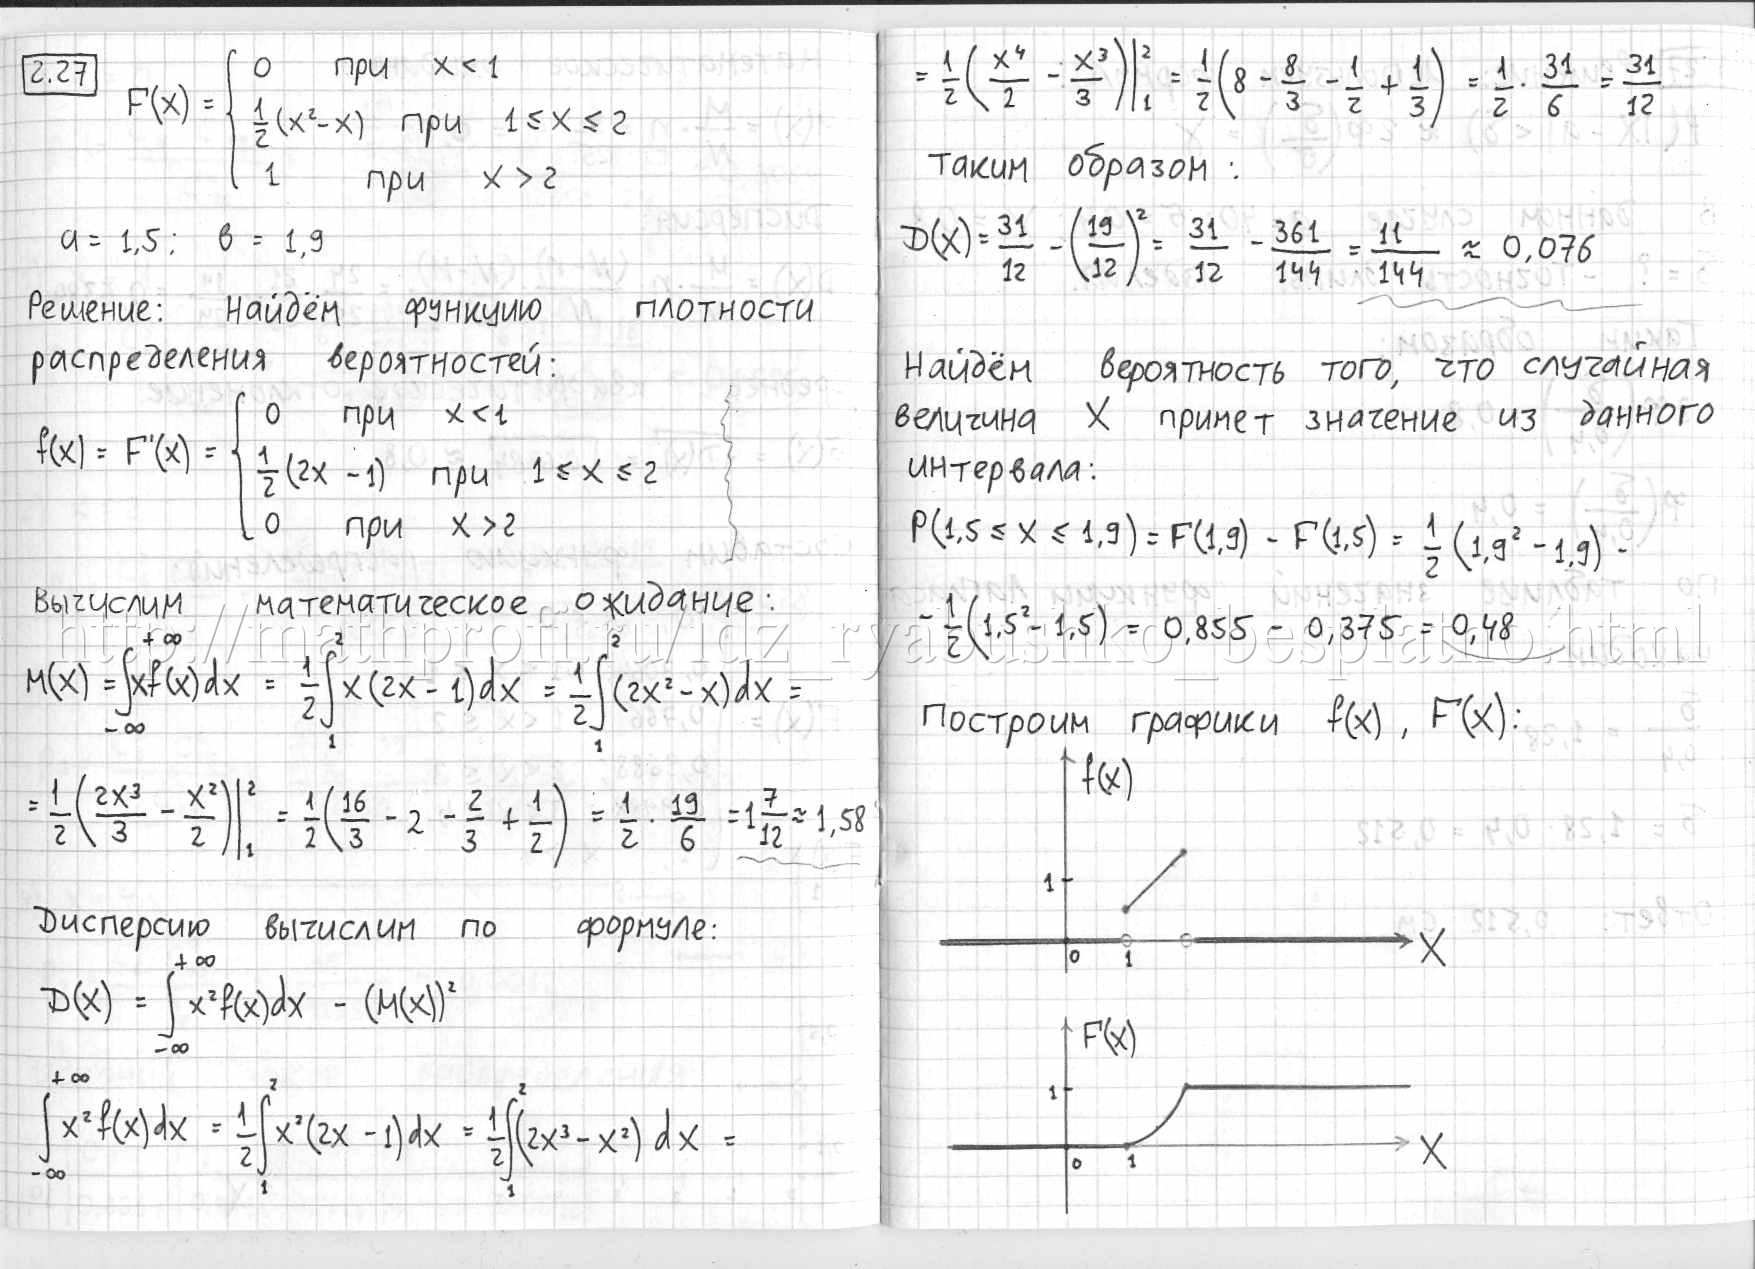 2.27
F(x) = { 0 при x < 1
1/2 (x² − x) при 1 ≤ x ≤ 2
1 при x > 2
a = 1,5; в = 1,9
Решение: Найдём функцию плотности
распределения вероятностей:
f(x) = F'(x) = { 0 при x < 1
1/2 (2x − 1) при 1 ≤ x ≤ 2
0 при x > 2
Вычислим математическое ожидание:
M(X) = ∫_{−∞}^{+∞} xf(x)dx = 1/2 ∫_1^2 x(2x − 1)dx = 1/2 ∫_1^2 (2x² − x)dx =
= 1/2 (2x³/3 − x²/2)|_1^2 = 1/2 (16/3 − 2 − 2/3 + 1/2) = 1/2 · 19/6 = 1 7/12 ≈ 1,58
Дисперсию вычислим по формуле:
D(X) = ∫_{−∞}^{+∞} x²f(x)dx − (M(X))²
∫_{−∞}^{+∞} x²f(x)dx = 1/2 ∫_1^2 x²(2x − 1)dx = 1/2 ∫_1^2 (2x³ − x²) dx =
= 1/2 (x⁴/2 − x³/3)|_1^2 = 1/2 (8 − 8/3 − 1/2 + 1/3) = 1/2 · 31/6 = 31/12
Таким образом:
D(X) = 31/12 − (19/12)² = 31/12 − 361/144 = 11/144 ≈ 0,076
Найдём вероятность того, что случайная
величина X примет значение из данного
интервала:
P(1,5 ≤ X ≤ 1,9) = F(1,9) − F(1,5) = 1/2 (1,9² − 1,9) −
− 1/2 (1,5² − 1,5) = 0,855 − 0,375 = 0,48
http://mathprofi.ru/idz_ryabushko_besplatno.html
Построим графики f(x), F(x):
f(x)
1
0 1 X
F(x)
1
0 1 X